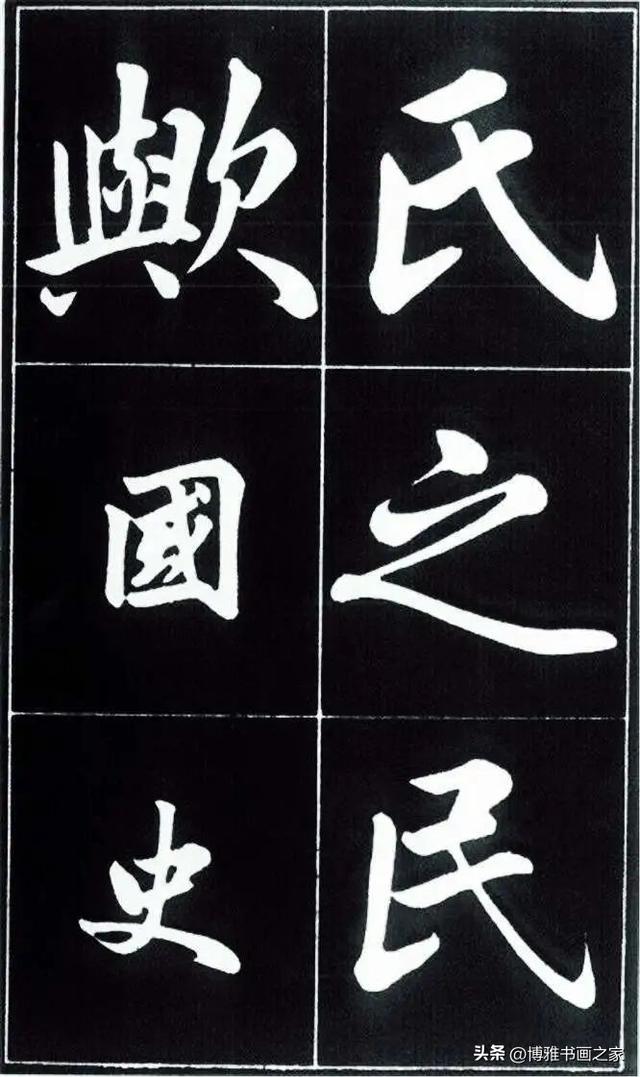 氏之民
歟國史
头条 @博雅书画之家